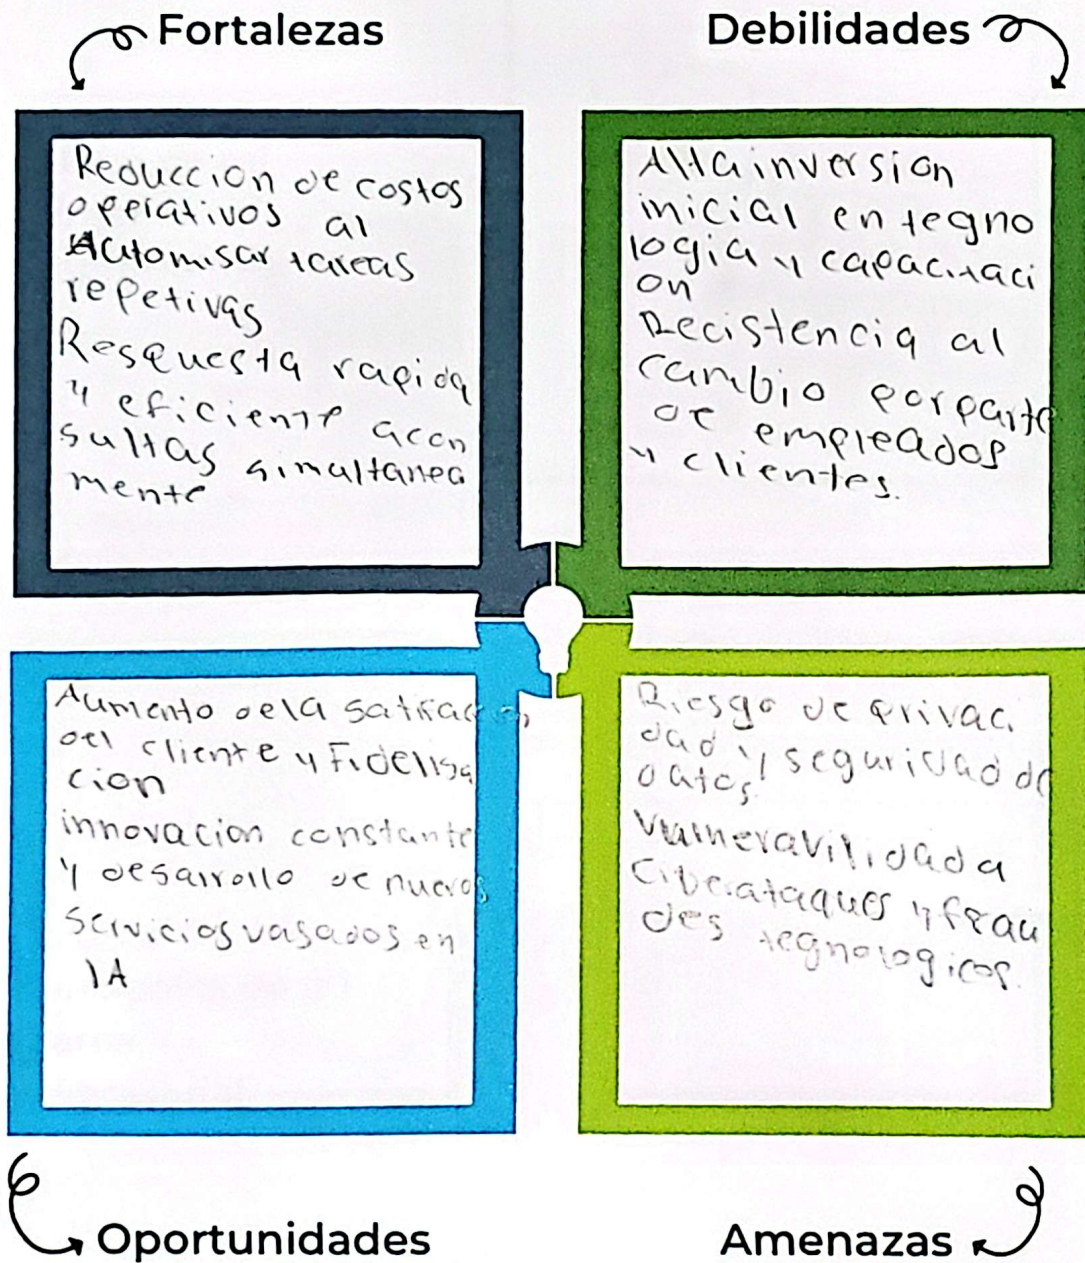 Fortalezas
Reduccion de costos
operativos al
Automisar tareas
repetivas
Respuesta rapida
y eficiente acon
sultas simultanea
mente
Debilidades
Alta inversion
inicial en tegno
logia y capacitaci
on
Recistencia al
cambio por parte
de empleados
y clientes.
Aumento dela satisfaccion
del cliente y Fidelisa
cion
innovacion constante
y desarrollo de nuevos
servicios vasados en
IA
Oportunidades
Riesgo de privaci
dad y seguridad de
datos.
Vulneravilidad a
Ciberataques y frau
des tegnologicos.
Amenazas